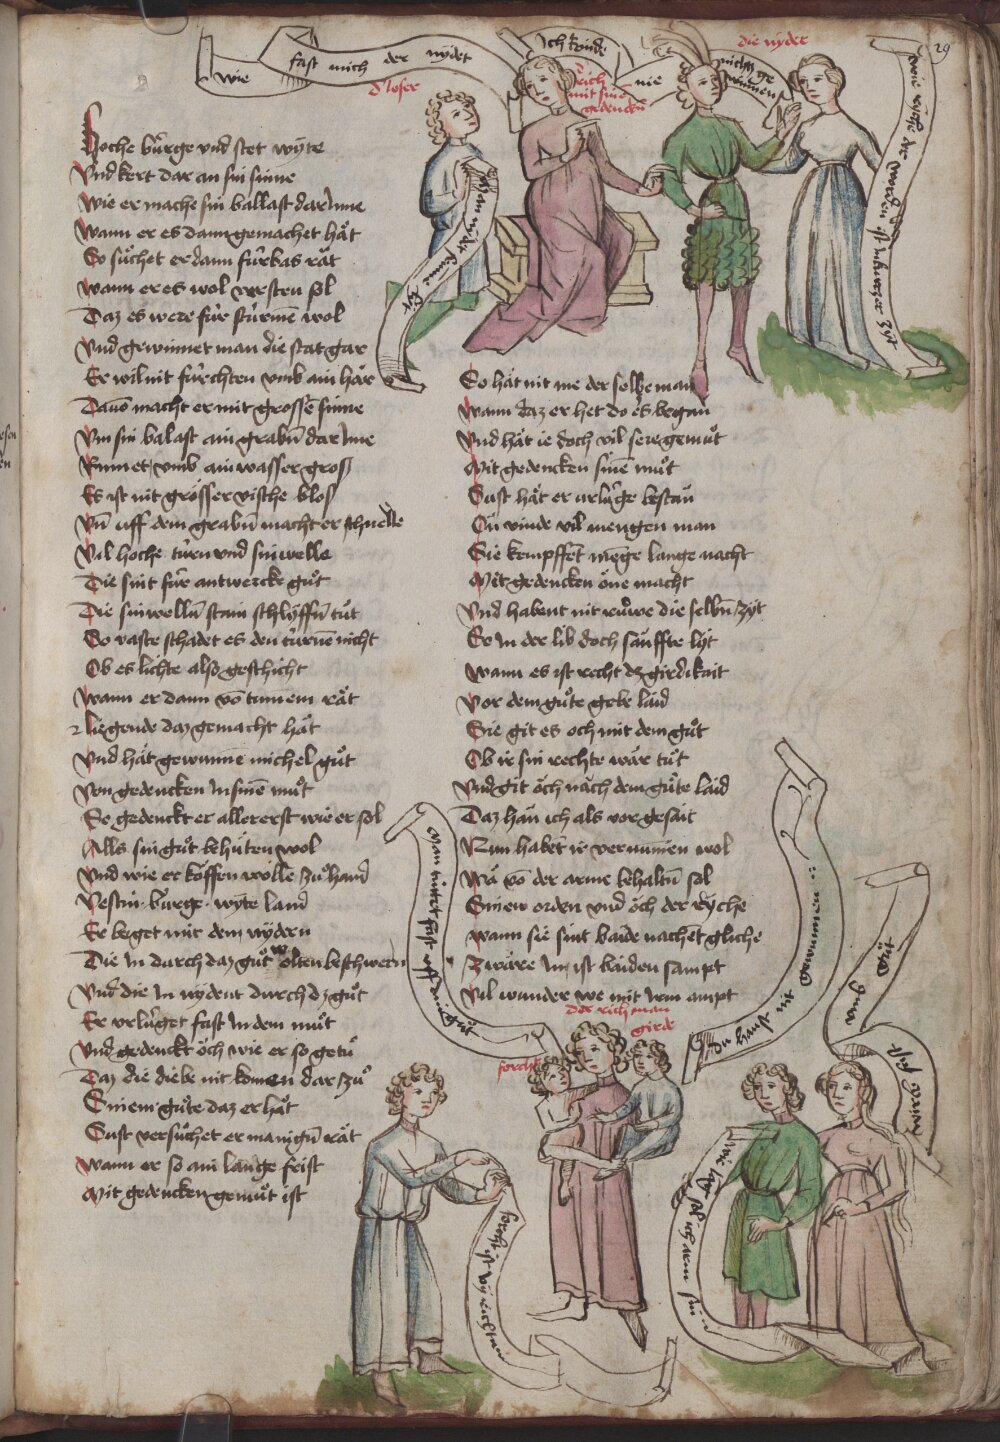 29
wie fast mich der nydet
Ich kunde nie
gewinnen
d loser
die nyder
rich
mit sine
gedencku
Hoche bürge vnd stet wyte
Vnd kert dar an sin sinne
Wie er mache sin ballast dar Inne
Wann er es dann gemachet hät
So süchet er dann fürbas rät
wann er es wol versten sol
Daz es were für stürme wol
Vnd gewinnet man die stat gar
Er wil nit fürchten vmb ain här
macht er mit grosse sinne
Vm sin balast ain grabn dar Inne
Rinnet vmb ain wasser gross
Es ist nit grösser vische blos
Vn uff dem grabn macht er schnelle
Vil hoche türn vnd sinwelle
Die sint für antwercke güt
Die sinwelln stain schlyffn tüt
So vaste schadet es den türnen nicht
Ob es lichte also geschicht
Wann er dann vo tur­nem rät
liegende daz gemacht hät
Vnd hät gewunne michel güt
Von gedencken In sine müt
So gedenckt er aller erst wie er sol
Alls sin güt behüten wol
Vnd wie er köffen wölle zü hand
Vestin bürge wyte land
Er beget mit dem nydern
Die In durch daz güt wolten beschwern
Vnd die In nydent durch dz güt
Er vrlüget fast In dem müt
Vnd gedenckt öch wie er so getü
Daz die diebe nit komen dar zü
Sinem güte daz er hät
Sust versüchet er manign rät
Wann er so ain lange frist
Mit gedencken gemüt ist
So hät nit me der selbe man
Wann daz er het do es began
Vnd hät ie doch vil sere gemüt
Mit gedencken sine müt
Sust hät er vrlüge bestan
vinde vil mengen man
Sie kempffet menge lange nacht
Mit gedencken one macht
Vnd habent nit rüwe die selbn zyt
So In der lib doch sanffte lyt
Wann es ist recht dz girdikait
Vor dem güte gebe laid
Sie git es och mit dem güt
Ob ir sin rechte wär tüt
Vnd git öch näch dem güte laid
Daz han ich als vor gesait
Nun habet ir vernumen wol
Wä vo der arme behaltn sol
Sinen orden vnd öch der ryche
Wann sie sint baide nachet gliche
Zwäre Im ist baiden sampt
Vil wunder we mit Irem ampt
der rich man
girde
forcht
Du haust nit Gewunnen
forcht ist by richtum